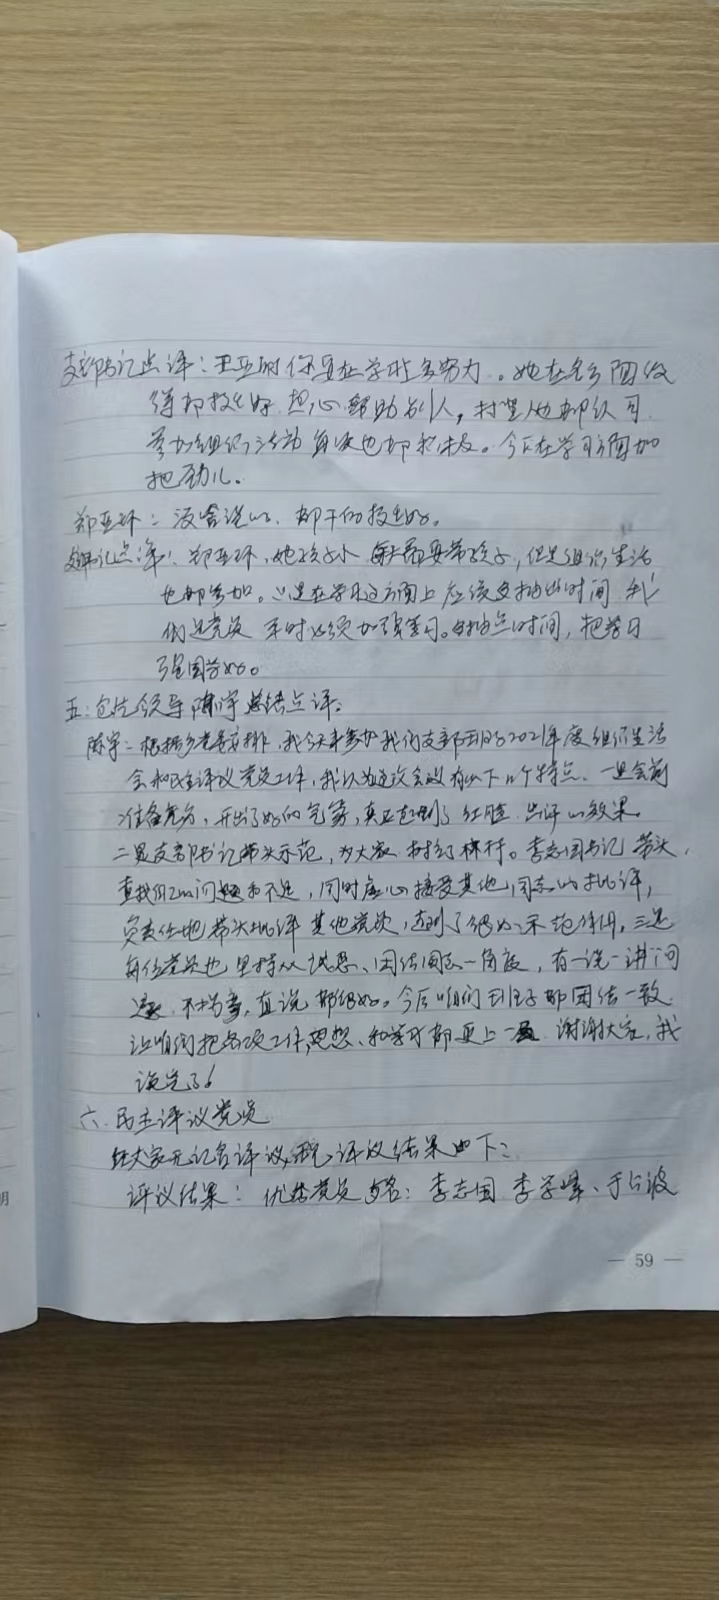 支部书记点评：王亚刚你要在学习上多努力。她在各方面做
得都挺好 热心帮助别人，村里人也都认可.
参加组织活动每次也都积极。今后在学习方面加
把劲儿。
郑亚环：没啥说的、都干的挺好。
支部书记点评：郑亚环，她孩子小 每天都要带孩子，但是组织生活
也都参加。就是在学习这方面上应该多抽出时间 我
们是党员 平时必须加强学习。每天抽点时间，把学习
强国学好。
五：包片领导陈宇总结点评。
陈宇：根据乡党委安排，我今天来参加我们支部班子2021年度组织生活
会和民主评议党员工作，我认为这次会议有以下几个特点、一是会前
准备充分，开出了好的气氛，真正起到了红脸 出汗的效果。
二是支部书记带头示范，为大家树起了榜样。李志国书记带头，
查找自己的问题和不足，同时虚心接受其他同志的批评，
负责任地带头批评其他党员，达到了很好示范作用，三是
每位党员也坚持从 团结同志一角度，有一说一讲问
题 直说 都很好。今后咱们班子都团结一致
让咱们把各项工作,思想、和学习都更上一层 谢谢大家，我
说完了！
六、民主评议党员
经大家无记名评议, 评议结果如下：
评议结果： 优秀党员 名：李志国 李学峰、于占波
— 59 —